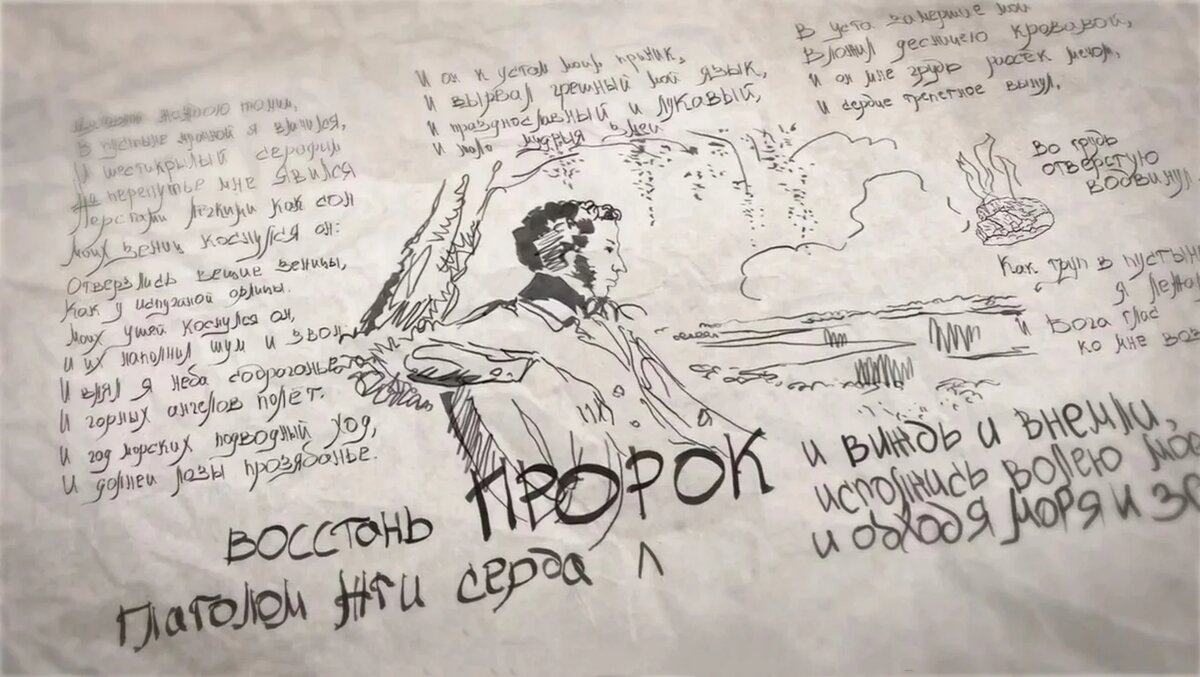 жаждою томим,
В пустыне мрачной я влачился,
И шестикрылый серафим
На перепутье мне явился
Перстами лёгкими как сон
Моих зениц коснулся он:
Отверзлись вещие зеницы,
Как у испуганой орлицы.
Моих ушей коснулся он,
И их наполнил шум и звон
И внял я неба
И горных ангелов полёт.
И гад морских подводный ход,
И дольней лозы прозябанье.
И он к устам моим приник,
И вырвал грешный мой язык,
И празднословный и лукавый,
И мудрыя змеи
В уста замершие мои
Вложил десницею кровавой,
И он мне грудь рассёк мечом,
И сердце трепетное вынул,
Во грудь
отверстую
водвинул.
Как труп в пустын
я лежа
И Бога глас
ко мне воз
и виждь и внемли,
исполнись волею мое
и обходя моря и зе
ВОССТАНЬ ПРОРОК
Глаголом жги серда л